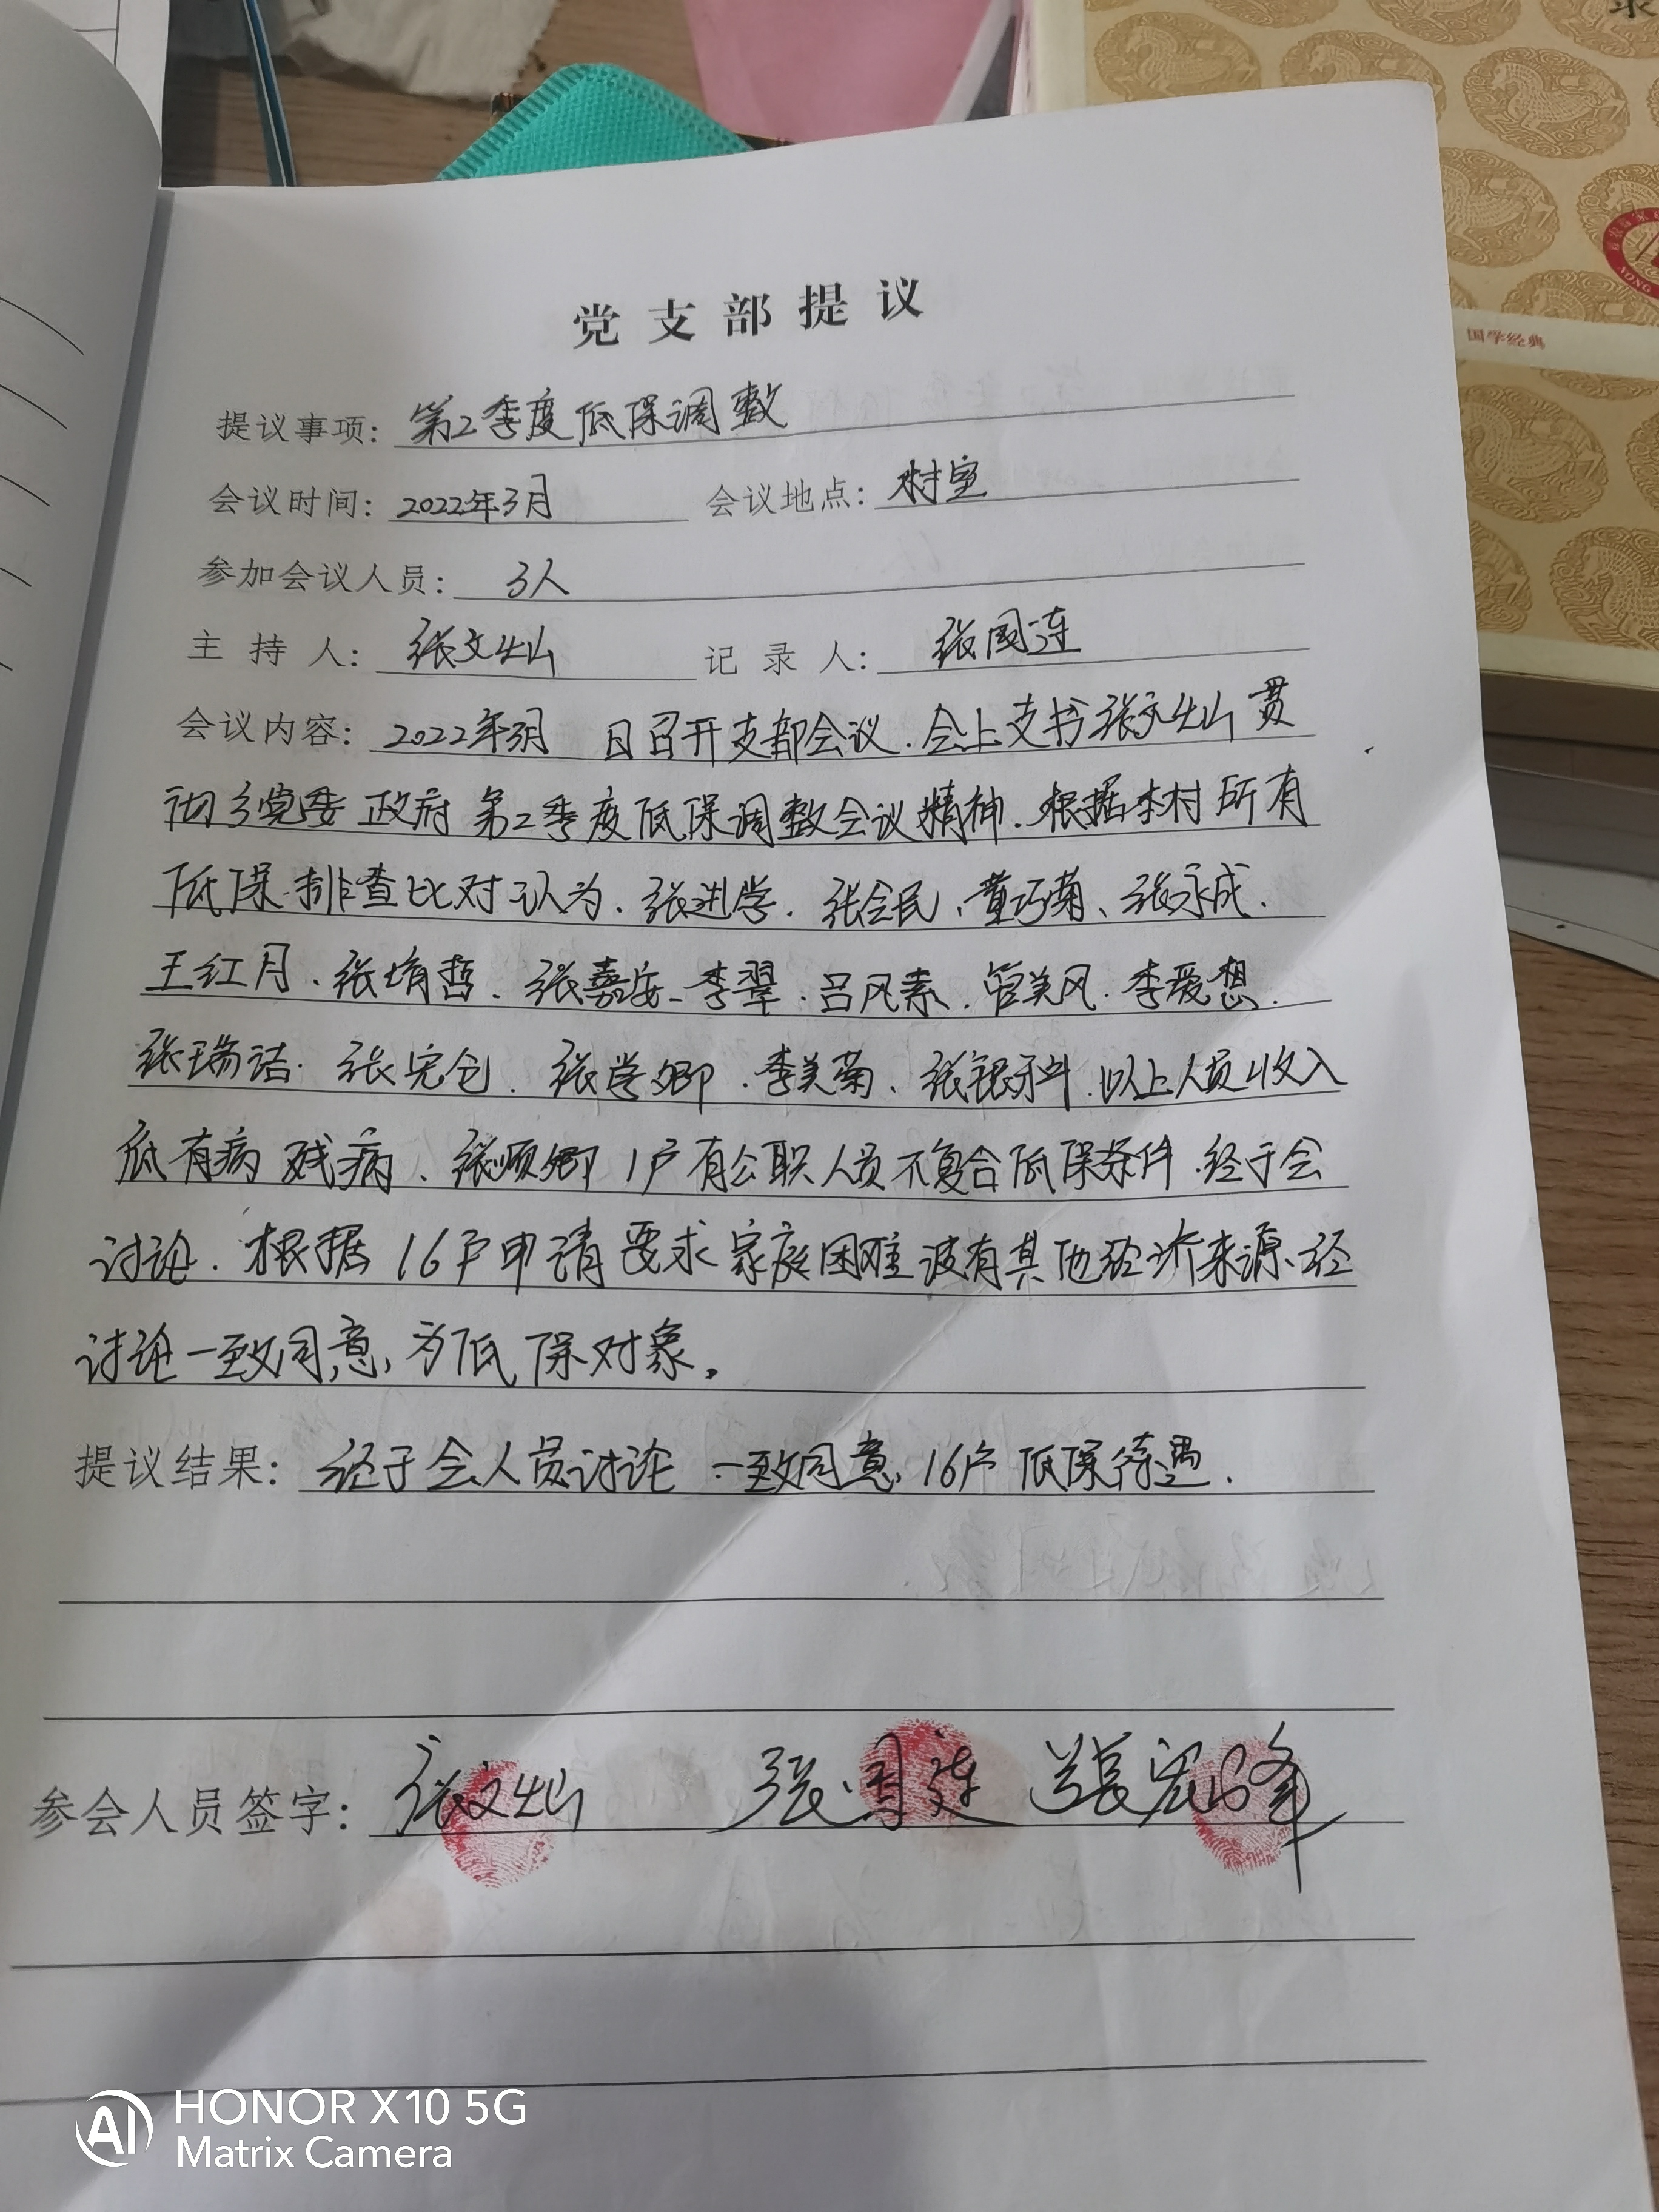 国学经典
党支部提议
提议事项: 第2季度低保调整
会议时间: 2022年3月 会议地点: 村室
参加会议人员: 3人
主持人: 张文灿 记录人: 张国连
会议内容: 2022年3月 日召开支部会议.会上支书张文灿贯
彻乡党委政府第2季度低保调整会议精神.根据本村所有
低保排查比对认为.张进学.张会民、董巧菊、张永成.
王红月.张哲.张嘉安.李翠.吕风素.管美风.李爱想.
张瑞洁.张完仓.张学卿.李美菊、张银科.以上人员收入
底有病残病.张顺卿1户有公职人员不复合低保条件.经于会
讨论.根据16户申请要求家庭困难没有其他经济来源、经
讨论一致同意,为低保对象。
提议结果: 经于会人员讨论一致同意,16户低保待遇.
参会人员签字: 张文灿 张国莲 张宏峰
HONOR X10 5G
Matrix Camera